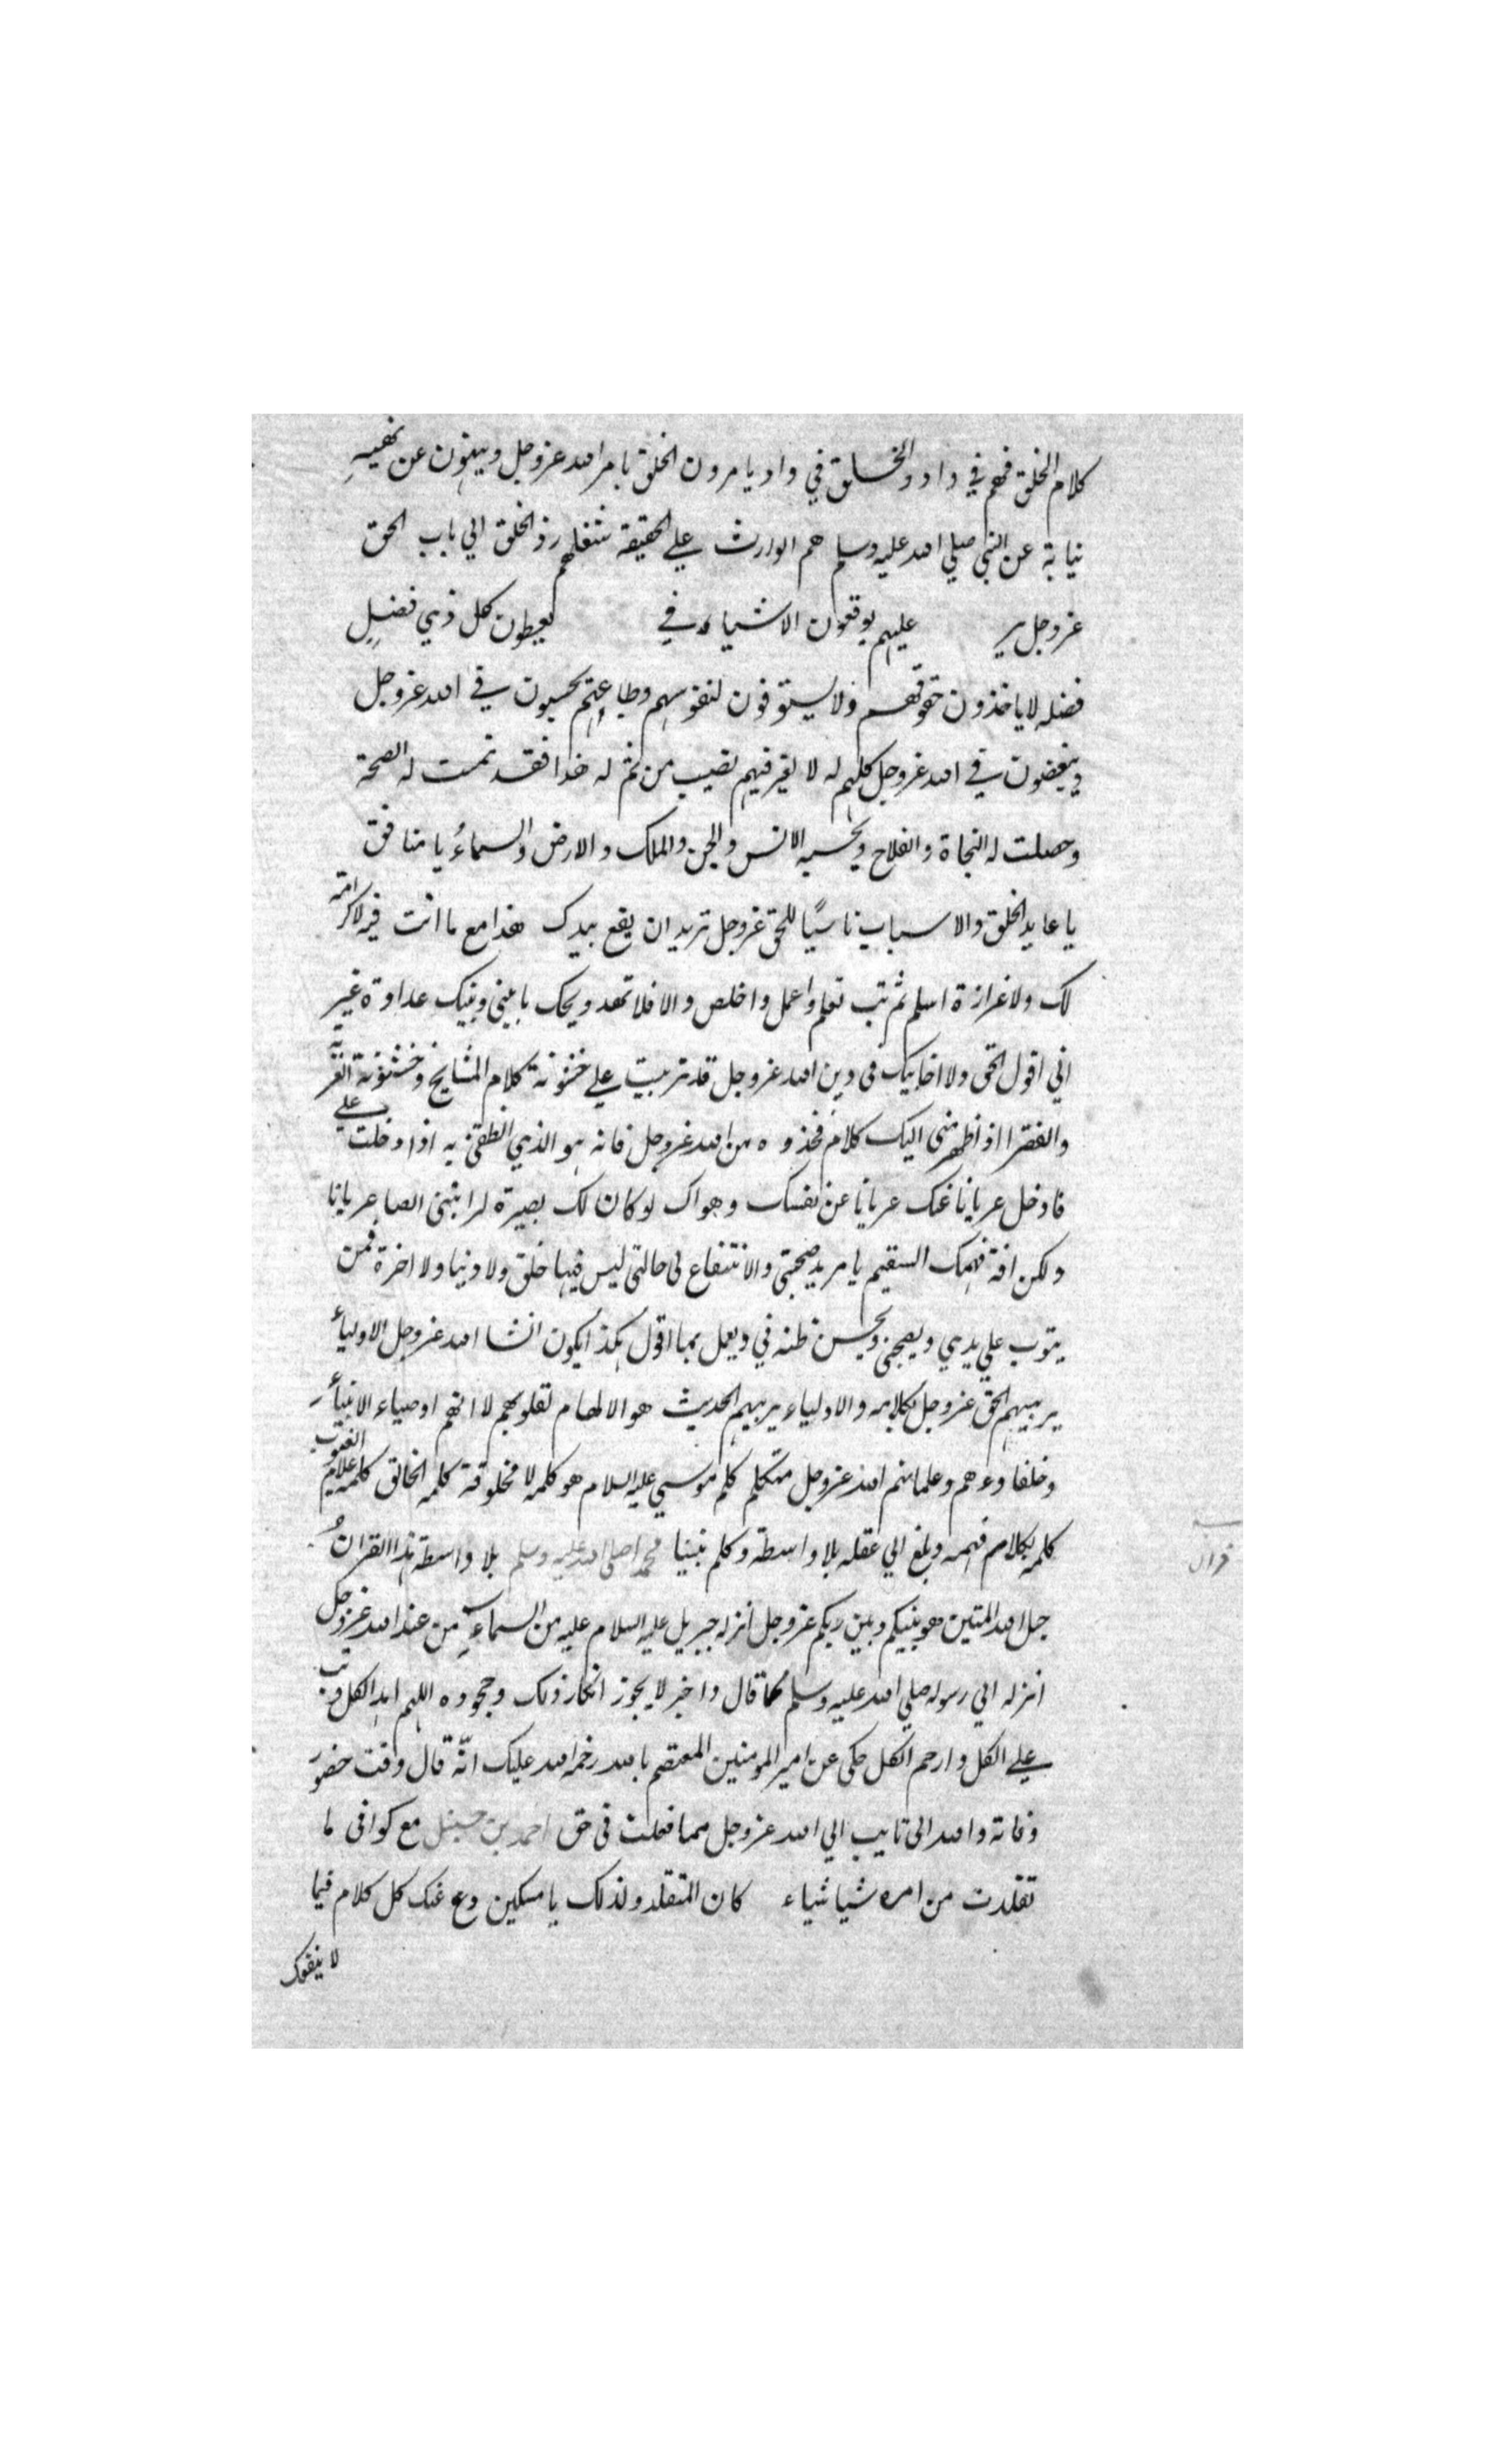 كلام الخلق فهم في واد والخلق في واد يامرون الخلق بامر الله عزوجل وينهون عن نهيه
نيابة عن النبي صلي الله عليه وسلم هم الوارث علي الحقيقة شغلهم رد الخلق الي باب الحق
عزوجل ير عليهم يوقعون الاشياء في يعطون كل ذي فضل
فضله لا ياخذون حقوقهم ولا يستوفون لنفوسهم وطباعتهم يحبون في الله عزوجل
ويبغضون في الله عزوجل كلهم له لا لغير فيهم نصيب من تم له هذا فقد تمت له الصحة
وحصلت له النجاة والفلاح ويحبه الانس والجن والملك والارض والسماء يا منافق
يا عابد الخلق والاسباب ناسيًا للحق عزوجل تريد ان يقع بيدك هذا مع ما انت فيه لا كرامة
لك ولا عزازة اسلم ثم تب تعلم واعمل واخلص والا فلا تهد ويحك ما بيني وبينك عداوة غير
اني اقول الحق ولا احابيك في دين الله عزوجل قد تربيت علي خشونة كلام المشايخ وخشونة الغربة
والفقر اذا ظهر مني اليك كلام فخذوه من الله عزوجل فانه هو الذي انطقني به اذا دخلت علي
فادخل عريانا عنك عريانا عن نفسك وهواك لو كان لك بصيرة لرايتني ايضا عريانا
ولكن افة فهمك السقيم يا مريد صحبتي والانتفاع لي حالتي ليس فيها خلق ولا دنيا ولا اخرة فمن
يتوب علي يدي ويصحبني ويحسن ظنه في ويعمل بما اقول هكذا يكون انشا الله عزوجل الاولياء
يربيهم الحق عزوجل بكلامه والاولياء يربيهم الحديث هو الالهام لقلوبهم لانهم اوصياء الانبياء
وخلفاوءهم وعلمانهم الله عزوجل متكلم كلم موسي عليه السلام هو كلمه لا مخلوقة كلمه الخالق كلمه علام الغيوب
كلمه بكلام فهمه وبلغ الي عقله بلا واسطة وكلم نبينا محمدا صلى الله عليه وسلم بلا واسطة هذا القران
حبل الله المتين هو بينكم وبين ربكم عزوجل انزله جبريل عليه السلام عليه من السماء من عند الله عزوجل
انزله الي رسوله صلي الله عليه وسلم كما قال واخبر لا يجوز انكار ذلك وجحوده اللهم اهد الكل وتب
علي الكل وارحم الكل حكي عن امير المومنين المعتصم بالله رحمة الله عليك انه قال وقت حضور
وفاته والله اني تايب الي الله عزوجل مما فعلت في حق احمد بن حنبل مع كوافي ما
تقلدت من امره شيا شياء كان المتقلد ولذلك يا مسكين دع عنك كل كلام فيما
لا ينفعك
قران